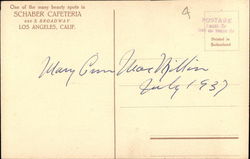 One of the many beauty spots in
SCHABER CAFETERIA
BROADWAY
LOS ANGELES, CALIF.
4
POSTAGE
Printed in
Switzerland
Mary Ann MacMillin
July 1937